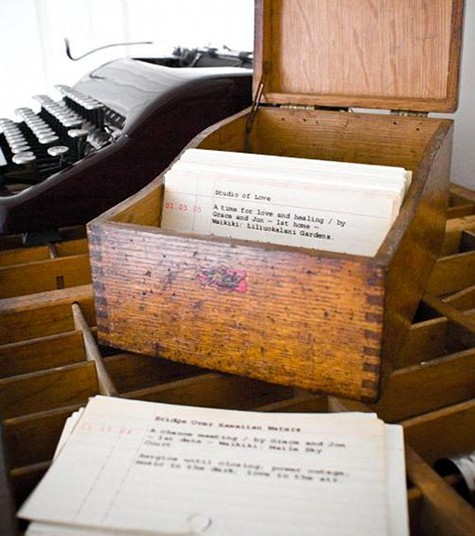 Studio of Love
01.05.05 A time for love and healing / by
Grace and Jon - 1st home -
Waikiki: Liliuokalani Gardens.
Bridge Over Hawaiian Waters
A chance meeting / by Grace and Jon
- 1st date - Waikiki: Maile Sky
Court
until closing; power outage;
music in the dark; love in the air.